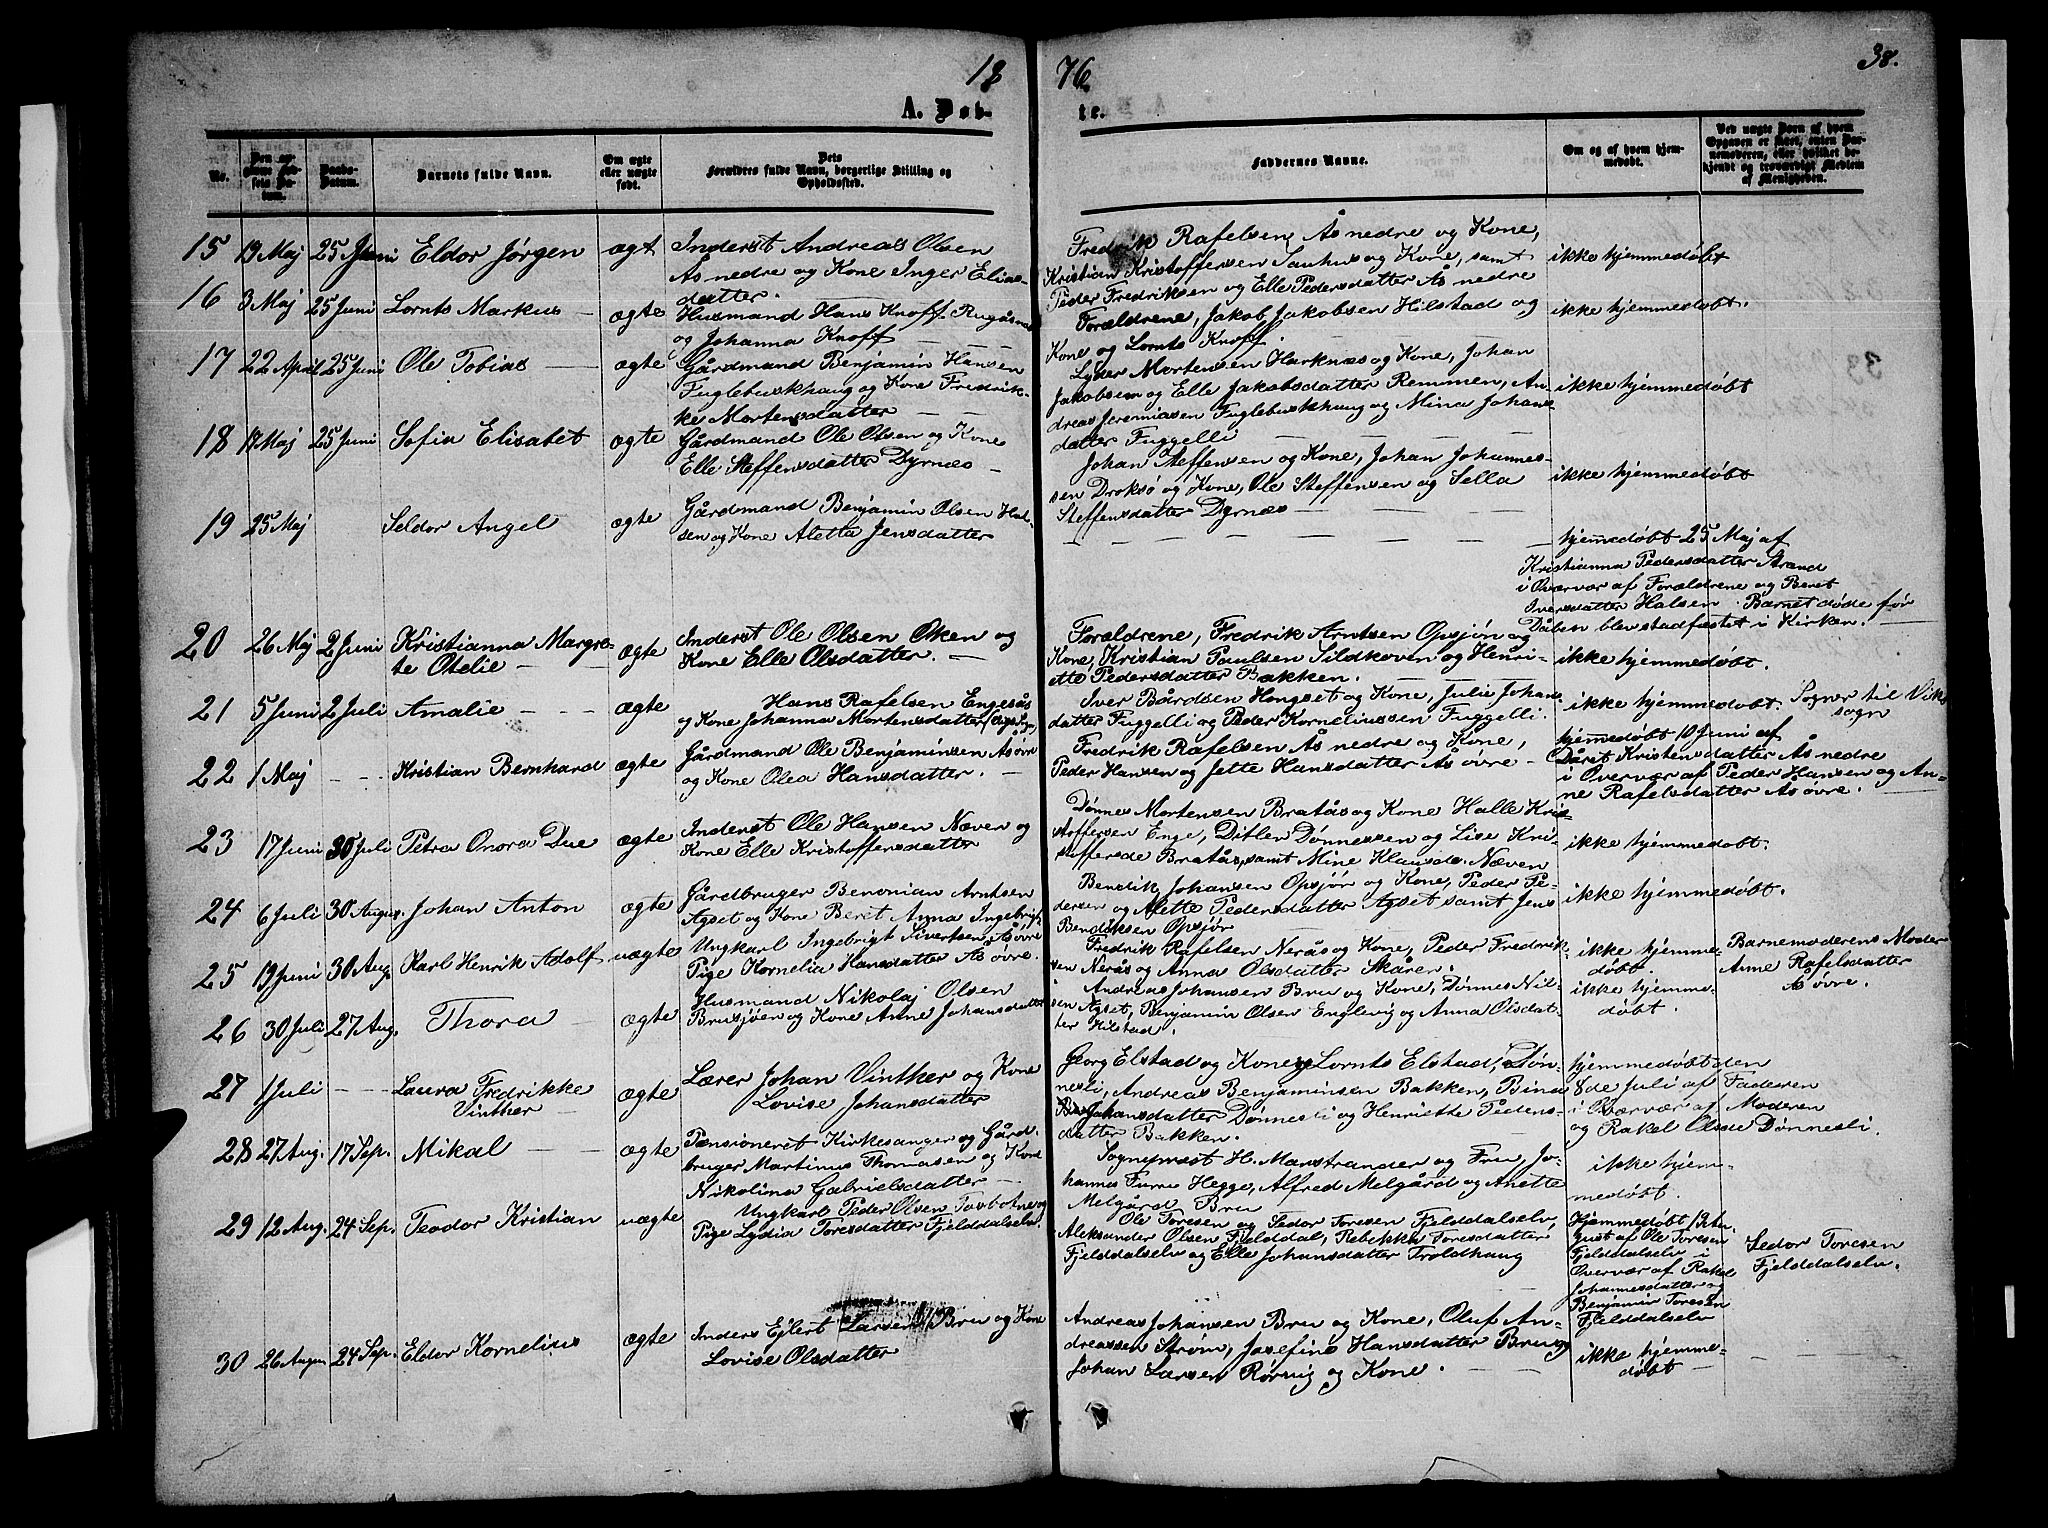 1876
38.
A. Døbte.
No.
Den opgivne Fødsels Datum.
Daabs-Datum.
Barnets fulde Navn.
Om ægte eller uægte født.
Dets Forældres fulde Navn, borgerlige Stilling og Opholdssted.
Faddernes Navne.
Om og af hvem hjemmedøbt.
Ved uægte Børn af hvem Opgaven er skeet, enten Barnemoderen, eller hvilket bekjendt og troværdigt Medlem af Menigheden.
15 19 Maj 25 Juni Eldor Jørgen ægt Inderst Andreas Olsen
Ås nedre og Kone Inger Elias-
datter.
Fredrik Rafelsen Ås nedre og Kone,
Kristian Kristoffersen Sauhus og Kone, samt
Peder Fredriksen og Elle Pedersdatter Ås nedre
ikke hjemmedøbt
16 3 Maj 25 Juni Lornts Markus ægte Husmand Hans Knoff
og Johanna Knoff
Forældrene, Jakob Jakobsen Hilstad og
Kone og Lornts Knoff.
ikke hjemmedøbt.
17 22 April 25 Juni Ole Tobias ægte Gårdmand Benjamin Hansen
Fuglebuskhaug og Kone Fredrik-
ke Mortensdatter
Lyder Mortensen Harknæs og Kone, Johan
Jakobsen og Elle Jakobsdatter Remmen, An-
dreas Jeremiasen Fuglebuskhaug og Mina Johans-
datter Fuggelli
ikke hjemmedøbt
18 17 Maj 25 Juni Sofia Elisabet ægte Gårdmand Ole Olsen og Kone
Elle Steffensdatter Dyrnæs
Johan Steffensen og Kone, Johan Johannes-
sen Droksø og Kone, Ole Steffensen og Sella
Steffensdatter Dyrnæs
ikke hjemmedøbt
19 25 Maj Seldor Angel ægte Gårdmand Benjamin Olsen Hal-
sen og Kone Aletta Jensdatter
hjemmedøbt 25 Maj af
Kristianna Pedersdatter Strand
i Overvær af Forældrene og Beret
Iversdatter Halsen. Barnet døde før
Dåben blev stadfæstet i Kirken.
20 26 Maj 2 Juni Kristianna Margre-
te Otelie ægte Inderst Ole Olsen Øken og
Kone Elle Olsdatter.
Forældrene, Fredrik Arntsen Opsjøn og
Kone, Kristian Paulsen Sildkoven og Henri-
ette Pedersdatter Bakken.
ikke hjemmedøbt.
21 5 Juni 2 Juli Amalie ægte Hans Rafelsen Engesås
og Kone Johanna Mortensdatter
Iver Bårdsen Hongset og Kone, Julie Johans-
datter Fuggelli og Peder Korneliussen Fuggelli.
ikke hjemmedøbt. Sogner til Vik
sogn
22 1 Maj Kristian Bernhard ægte Gårdmand Ole Benjaminsen Ås øvre
og Kone Olea Hansdatter.
Fredrik Rafelsen Ås nedre og Kone,
Peder Hansen og Jette Hansdatter Ås øvre
hjemmedøbt 10 Juni af
Dåret Kristensdatter Ås nedre
i Overvær af Peder Hansen og An-
ne Rafelsdatter Ås øvre.
23 17 Juni 30 Juli Petra Onora Due ægte Inderst Ole Hansen Næven og
Kone Elle Kristoffersdatter
Dønnes Mortensen Bratås og Kone Halle Kris-
toffersen Enge, Ditlev Dønnessen og Lise Kri-
stoffersd. Bratås, samt Mine Klausd. Næven
ikke hjemmedøbt.
24 6 Juli 30 August. Johan Anton ægte Gårdbruger Benonian Arntsen
Agset og Kone Beret Anna Ingebrigts
Bendik Johansen Opsjør og Kone, Peder Pe-
dersen og Alette Pedersdatter Agset samt Jens
Bendiksen Opsjør
ikke hjemmedøbt.
25 19 Juni 30 Aug. Karl Henrik Adolf uægte Ungkarl Ingebrigt Sivertsen Ås øvre
Pige Kornelia Hansdatter Ås øvre.
Fredrik Rafelsen Nerås og Kone, Peder Fredrik-
sen Nerås og Anna Olsdatter Skåren.
ikke hjemme-
døbt.
Barnemoderens Moder
Anne Rafelsdatter
Ås øvre.
26 30 Juli 27 Aug. Thora ægte Husmand Nikolaj Olsen
Brusjøen og Kone Anne Johansdatter
Andreas Johansen Bru og Kone, Dønnes Nil-
sen Agset, Benjamin Olsen Englevig og Anna Olsdat-
ter Hilstad.
ikke hjemme-
døbt.
27 1 Juli Laura Fredrikke
Vinther ægte Lærer Johan Vinther og Kone
Lovise Johansdatter
Georg Elstad og Kone, Lornts Elstad, Døn-
nesli, Andreas Benjaminsen Bakken, Bina
Johansdatter Dønnesli og Henriette Peders-
datter Bakken.
hjemmedøbt den
8de Juli af Faderen
i Overvær af Moderen
og Rakel Olsd. Dønnesli.
28 27 Aug. 17 Sep. Mikal ægte Pensioneret Kirkesanger og Gård-
bruger Martinus Thomasen og Kone
Nikolina Gabrielsdatter
Sognepræst H. Marstrander og Fru, Jo-
hannes Furre Hegge, Alfred Melgård og Anette
Melgård Bru
ikke hjem-
medøbt.
29 12 Aug. 24 Sep. Teodor Kristian uægte Ungkarl Peder Olsen
Pige Lydia Toresdatter Fjelddalselv.
Ole Toresen og Sedor Toresen Fjelddalselv,
Aleksander Olsen Fjelddal, Rebekka Toresdatter
Fjelddalselv og Elle Johansdatter Troldhaug
Hjemmedøbt 13 Au-
gust af Ole Toresen
Fjelddalselv i
Overvær af Rakel
Johannesdatter og
Benjamin Toresen
Fjelddalselv
Sedor Toresen
Fjelddalselv.
30 26 August 24 Sep. Eldor Kornelius ægte Anders Ejlert Larsen Bru og Kone
Lovise Olsdatter
Andreas Johansen Bru og Kone, Oluf An-
dreassen Strøm, Josefine Hansdatter Bru og
Johan Larsen Rørvig og Kone.
ikke hjemme-
døbt